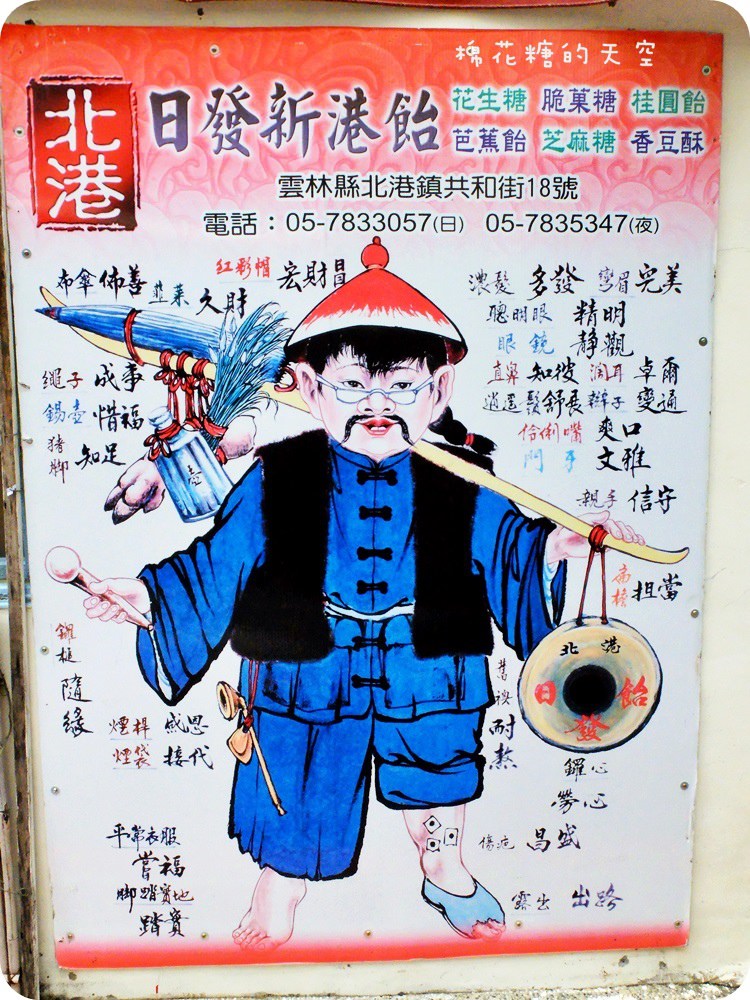 棉花糖的天空
北港
日發新港飴
花生糖 脆菓糖 桂圓飴
芭蕉飴 芝麻糖 香豆酥
雲林縣北港鎮共和街18號
電話：05-7833057(日) 05-7835347(夜)
紅彩帽 宏財昌
布傘 佈善
韮菜 久財
繩子 成事
錫壺 惜福
猪脚 知足
壺
濃髮 多發 彎眉 完美
聰明眼 精明
眼鏡 靜觀
直鼻 知彼 潤耳 卓爾
逍遥鬚 舒展 辮子 變通
伶俐嘴 爽口
門牙 文雅
親手 信守
扁擔 担當
北港
日發飴
鑼槌 隨緣
煙桿 感恩
煙袋 接代
舊襖 耐熬
鑼心
勞心
傷疤 昌盛
露出 出路
平常衣服
嘗福
脚踏實地
踏實